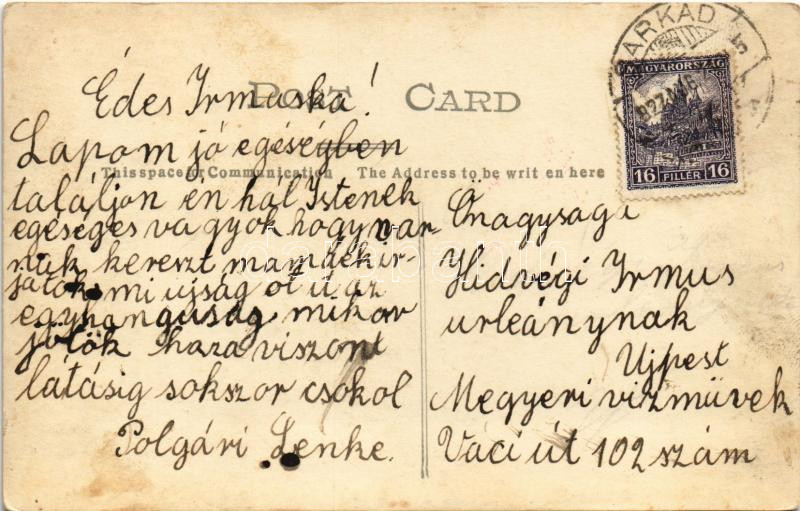 POST CARD
This space for Communication The Address to be writ en here
SARKAD
MAGYARORSZÁG
16 FILLÉR 16
Édes Irmuska!
Lapom jó egészégben
találjon én hál Istenek
egéséges va gyok hogy van-
nak kereszt mamáék ir-
játok mi ujság ot it az
egyhanguság mikor
jötök haza viszont
látásig sokszor csokol
Polgári Lenke.
Önagysága
Hidvégi Irmus
urleánynak
Ujpest
Megyeri vizmüvek
Váci út 102 szám